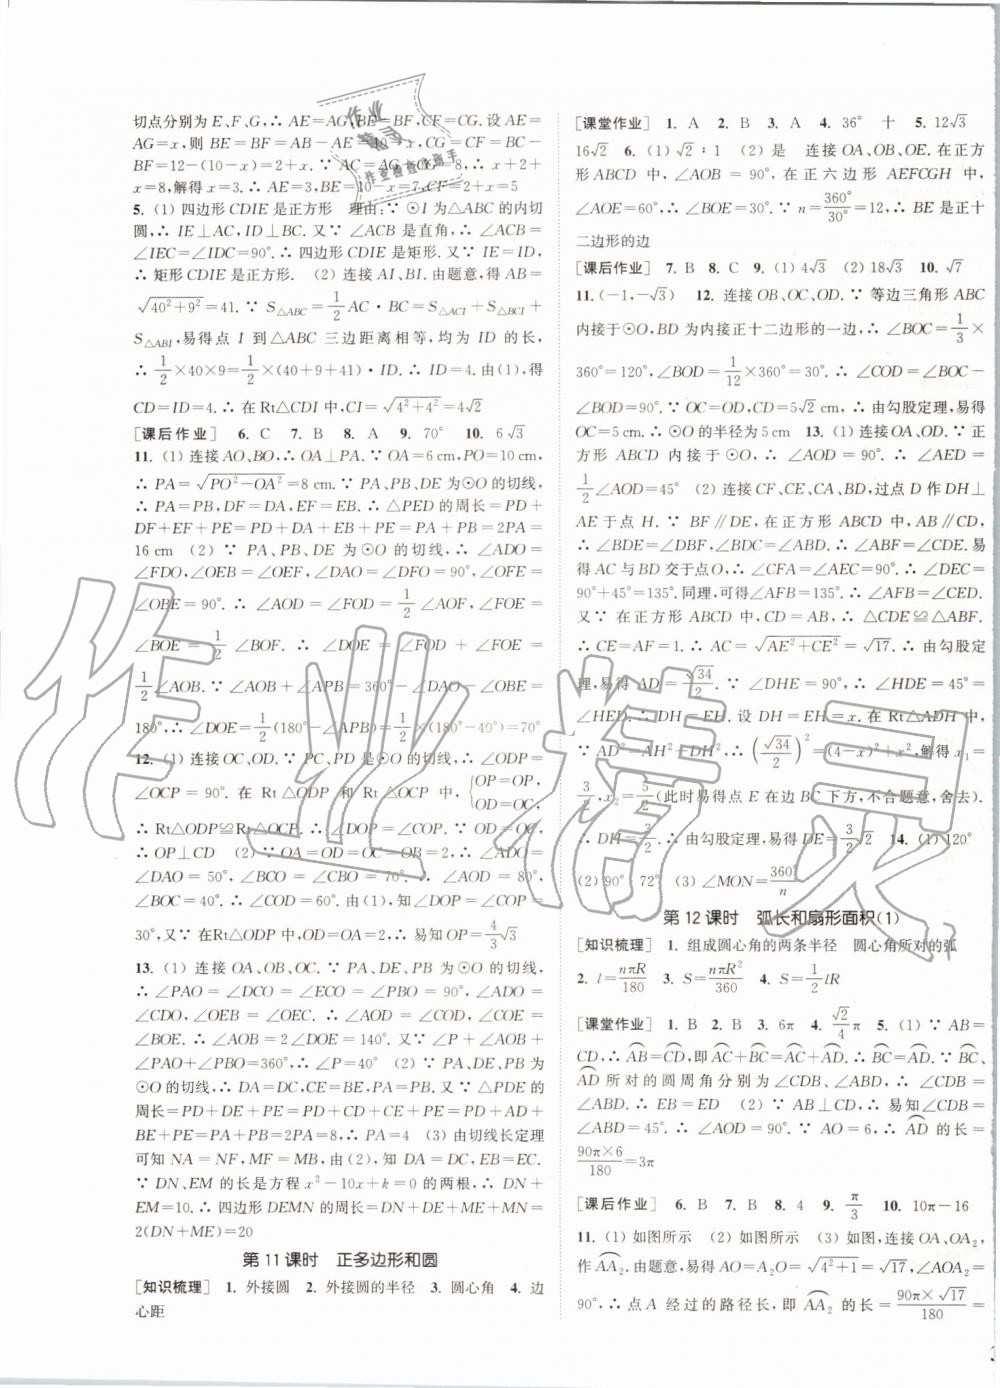 切点分别为 E、F、G,∴ AE=AG,BE=BF,CF=CG. 设 AE=
AG=x,则 BE=BF=AB-AE=10-x,
BF=12-(10-x)=2+x. ∵ AC=AG+CG=8,∴ x+2+
x=8,解得 x=3. ∴ AE=3,BE=10-x=7,CF=2+x=5
5. (1) 四边形 CDIE 是正方形 理由:∵ ⊙I 为△ABC 的内切
圆,∴ IE⊥AC,ID⊥BC. 又∵ ∠ACB 是直角,∴ ∠ACB=
∠IEC=∠IDC=90°. ∴ 四边形 CDIE 是矩形. 又∵ IE=ID,
∴ 矩形 CDIE 是正方形 (2) 连接 AI、BI. 由题意,得 AB=
√(40²+9²)=41. ∵ S△ABC=1/2 AC·BC=S△ACI+S△BCI+
S△ABI,易得点 I 到△ABC 三边距离相等,均为 ID 的长,
∴ 1/2×40×9=1/2×(40+9+41)·ID. ∴ ID=4. 由(1),得
CD=ID=4. ∴ 在 Rt△CDI 中,CI=√(4²+4²)=4√2
[课后作业] 6. C 7. B 8. A 9. 70° 10. 6√3
11. (1) 连接 AO、BO,∴ OA⊥PA. ∵ OA=6 cm,PO=10 cm,
∴ PA=√(PO²-OA²)=8 cm. ∵ PA、PB、DE 为⊙O 的切线,
∴ PA=PB,DF=DA,EF=EB. ∴ △PED 的周长=PD+
DF+EF+PE=PD+DA+EB+PE=PA+PB=2PA=
16 cm (2) ∵ PA、PB、DE 为⊙O 的切线,∴ ∠ADO=
∠FDO,∠OEB=∠OEF,∠DAO=∠DFO=90°,∠OFE=
∠OBE=90°. ∴ ∠AOD=∠FOD=1/2∠AOF,∠FOE=
∠BOE=1/2∠BOF. ∴ ∠DOE=∠FOD+∠FOE=
1/2∠AOB. ∵ ∠AOB+∠APB=360°-∠DAO-∠OBE=
180°,∴ ∠DOE=1/2(180°-∠APB)=1/2×(180°-40°)=70°
12. (1) 连接 OC、OD. ∵ PC、PD 是⊙O 的切线,∴ ∠ODP=
∠OCP=90°. 在 Rt△ODP 和 Rt△OCP 中,{OP=OP, OD=OC,
∴ Rt△ODP≌Rt△OCP. ∴ ∠DOP=∠COP. ∵ OD=OC,
∴ OP⊥CD (2) ∵ OA=OD=OC=OB=2,∴ ∠ADO=
∠DAO=50°,∠BCO=∠CBO=70°. ∴ ∠AOD=80°,
∠BOC=40°. ∴ ∠COD=60°. 由(1),知∠DOP=∠COP=
30°,又∵ 在Rt△ODP 中,OD=OA=2,∴ 易知 OP=4/3√3
13. (1) 连接 OA、OB、OC. ∵ PA、PB、DE 为⊙O 的切线,
∴ ∠PAO=∠DCO=∠ECO=∠PBO=90°,∠ADO=
∠CDO,∠OEB=∠OEC. ∴ ∠AOD=∠COD,∠COE=
∠BOE. ∴ ∠AOB=2∠DOE=140°. 又∵ ∠P+∠AOB+
∠PAO+∠PBO=360°,∴ ∠P=40° (2) ∵ PA、DE、PB 为
⊙O 的切线,∴ DA=DC,CE=BE,PA=PB. 又∵ △PDE 的
周长=PD+DE+PE=PD+CD+CE+PE=PD+AD+
BE+PE=PA+PB=2PA=8,∴ PA=4 (3) 由切线长定理
可知 NA=NF,MF=MB,由(2),知 DA=DC,EB=EC.
∵ DN、EM 的长是方程 x²-10x+k=0 的两根,∴ DN+
EM=10. ∴ 四边形 DEMN 的周长=DN+DE+EM+MN=
2(DN+ME)=20
第 11 课时 正多边形和圆
[知识梳理] 1. 外接圆 2. 外接圆的半径 3. 圆心角 4. 边
心距
[课堂作业] 1. A 2. B 3. A 4. 36° 十 5. 12√3
16√2 6. (1) √2∶1 (2) 是 连接 OA、OB、OE. 在正方
形 ABCD 中,∠AOB=90°,在正六边形 AEFCGH 中,
∠AOE=60°,∴ ∠BOE=30°. ∵ n=360°/30°=12,∴ BE 是正十
二边形的边
[课后作业] 7. B 8. C 9. (1) 4√3 (2) 18√3 10. √7
11. (-1,-√3) 12. 连接 OB、OC、OD. ∵ 等边三角形 ABC
内接于⊙O,BD 为内接正十二边形的一边,∴ ∠BOC=1/3×
360°=120°,∠BOD=1/12×360°=30°. ∴ ∠COD=∠BOC-
∠BOD=90°. ∵ OC=OD,CD=5√2 cm,∴ 由勾股定理,易得
OC=5 cm. ∴ ⊙O 的半径为 5 cm 13. (1) 连接 OA、OD. ∵ 正
方形 ABCD 内接于⊙O,∴ ∠AOD=90°. ∴ ∠AED=
1/2∠AOD=45° (2) 连接 CF、CE、CA、BD,过点 D 作 DH⊥
AE 于点 H. ∵ BF∥DE,在正方形 ABCD 中,AB∥CD,
∴ ∠BDE=∠DBF,∠BDC=∠ABD. ∴ ∠ABF=∠CDE. 易
得 AC 与 BD 交于点 O,∴ ∠CFA=∠AEC=90°. ∴ ∠DEC=
90°+45°=135°. 同理,可得∠AFB=135°. ∴ ∠AFB=∠CED.
又∵ 在正方形 ABCD 中,CD=AB,∴ △CDE≌△ABF.
∴ CE=AF=1. ∴ AC=√(AE²+CE²)=√17. ∴ 由勾股定
理,易得 AD=√34/2. ∵ ∠DHE=90°,∴ ∠HDE=45°=
∠HED. ∴ DH=EH. 设 DH=EH=x. 在 Rt△ADH 中,
∵ AD²=AH²+DH²,∴ (√34/2)²=(4-x)²+x²,解得 x₁=
3/2,x₂=5/2(此时易得点 E 在边 BC 下方,不合题意,舍去).
∴ DH=3/2. ∴ 由勾股定理,易得 DE=3/2√2 14. (1) 120°
(2) 90° 72° (3) ∠MON=360°/n
第 12 课时 弧长和扇形面积(1)
[知识梳理] 1. 组成圆心角的两条半径 圆心角所对的弧
2. l=nπR/180 3. S=nπR²/360 4. S=1/2 lR
[课堂作业] 1. B 2. B 3. 6π 4. √2/4 π 5. (1) ∵ AB=
CD,∴ A͡B=C͡D,即A͡C+B͡C=A͡C+A͡D. ∴ B͡C=A͡D. ∵ B͡C、
A͡D 所对的圆周角分别为∠CDB、∠ABD,∴ ∠CDB=
∠ABD. ∴ EB=ED (2) ∵ AB⊥CD,∴ 易知∠CDB=
∠ABD=45°. ∴ ∠AOD=90°. ∵ AO=6,∴ A͡D 的长=
90π×6/180=3π
[课后作业] 6. B 7. B 8. 4 9. π/3 10. 10π-16
11. (1) 如图所示 (2) 如图所示 (3) 连接 OA、OA₂,
作A͡A₂. 由题意,易得 AO=A₂O=√(4²+1²)=√17,∠AOA₂=
90°,∴ 点 A 经过的路径长,即 A͡A₂ 的长=90π×√17/180
作业精灵